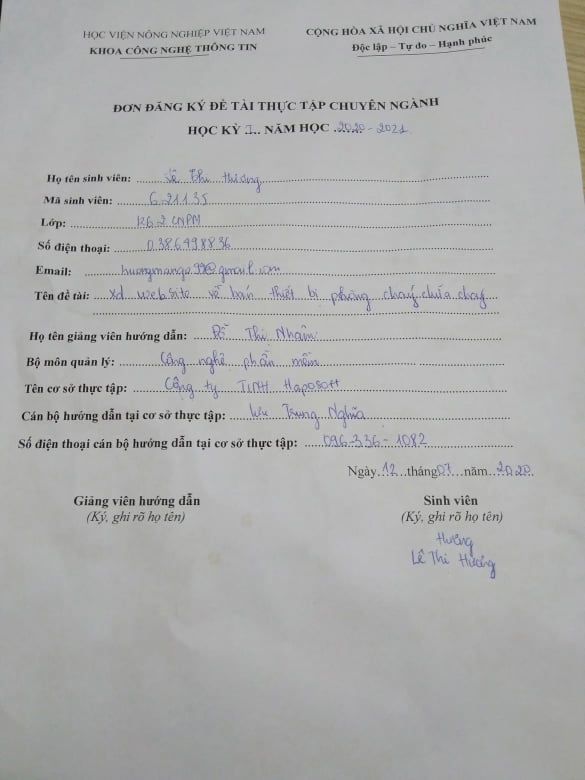 HỌC VIỆN NÔNG NGHIỆP VIỆT NAM
KHOA CÔNG NGHỆ THÔNG TIN
CỘNG HÒA XÃ HỘI CHỦ NGHĨA VIỆT NAM
Độc lập – Tự do – Hạnh phúc
ĐƠN ĐĂNG KÝ ĐỀ TÀI THỰC TẬP CHUYÊN NGÀNH
HỌC KỲ I NĂM HỌC 2020 - 2021
Họ tên sinh viên: Lê Thị Hương
Mã sinh viên: 621135
Lớp: K62 CNPM
Số điện thoại: 0386498836
Email: huongmango99@gmail.com
Tên đề tài: xd website về bán thiết bị phòng cháy chữa cháy
Họ tên giảng viên hướng dẫn: Đỗ Thị Nhâm
Bộ môn quản lý: Công nghệ phần mềm
Tên cơ sở thực tập: Công ty TNHH Haposoft
Cán bộ hướng dẫn tại cơ sở thực tập: Lưu Trung Nghĩa
Số điện thoại cán bộ hướng dẫn tại cơ sở thực tập: 096-336-1082
Ngày 12 tháng 07 năm 2020
Giảng viên hướng dẫn
(Ký, ghi rõ họ tên)
Sinh viên
(Ký, ghi rõ họ tên)
Hương
Lê Thị Hương